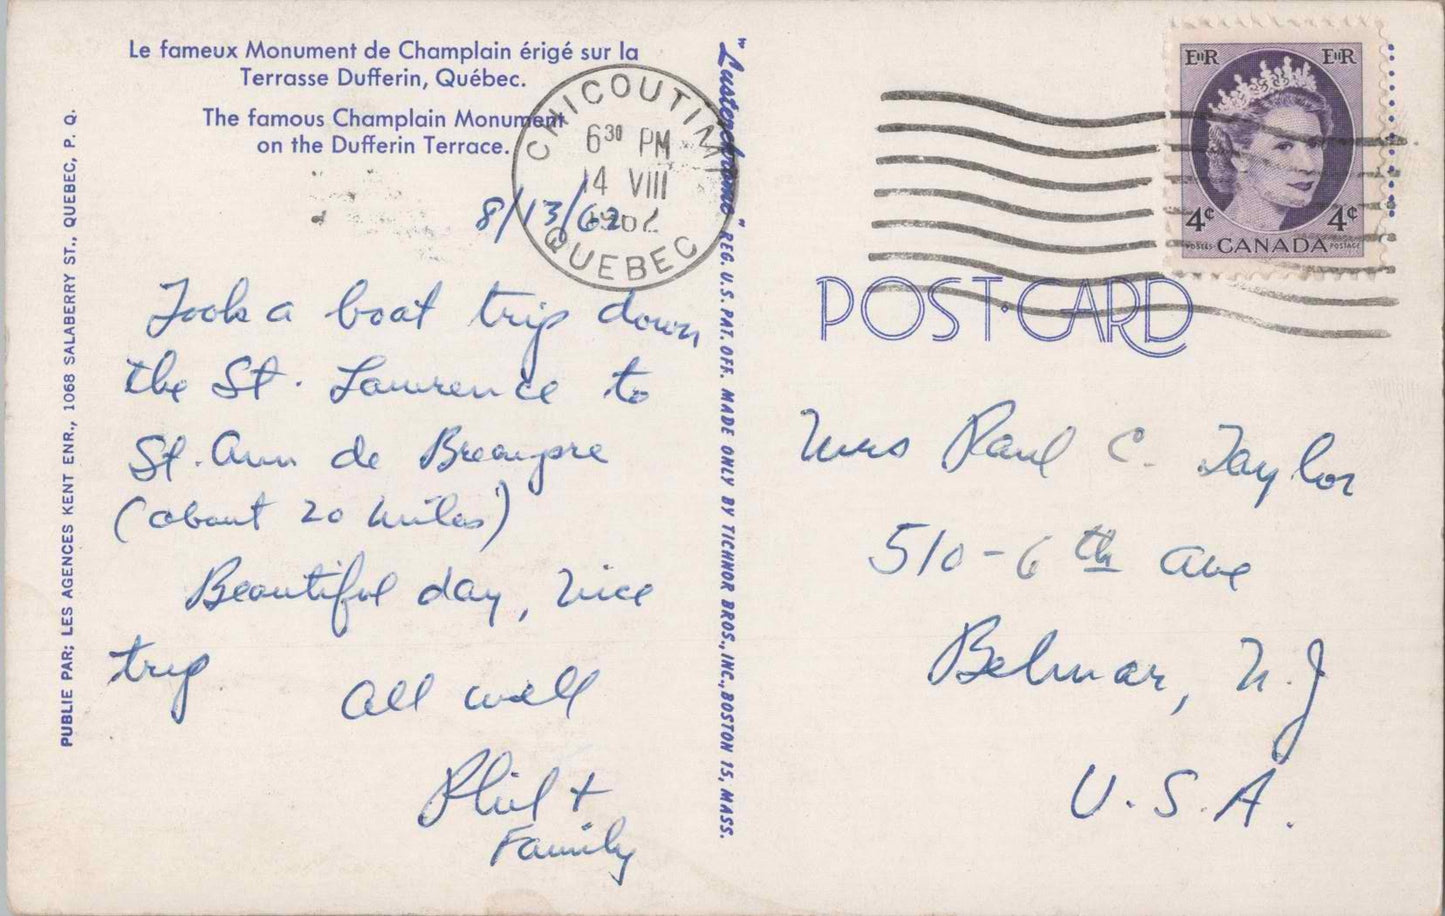 Le fameux Monument de Champlain érigé sur la
Terrasse Dufferin, Québec.
The famous Champlain Monument
on the Dufferin Terrace.
PUBLIE PAR; LES AGENCES KENT ENR., 1068 SALABERRY ST., QUEBEC, P. Q.
8/13/62
Took a boat trip down
the St. Lawrence to
St. Ann de Breaupre
(about 20 miles)
Beautiful day, nice
trip
All well
Phil +
Family
"Lusterchrome" REG. U.S. PAT. OFF. MADE ONLY BY TICHNOR BROS., INC., BOSTON 15, MASS.
CHICOUTIMI
6³⁰ PM
14 VIII
1962
QUEBEC
EIIR EIIR
4¢ 4¢
POSTES CANADA POSTAGE
POST·CARD
Mrs Paul C. Taylor
510-6th Ave
Belmar, N.J
U.S.A.